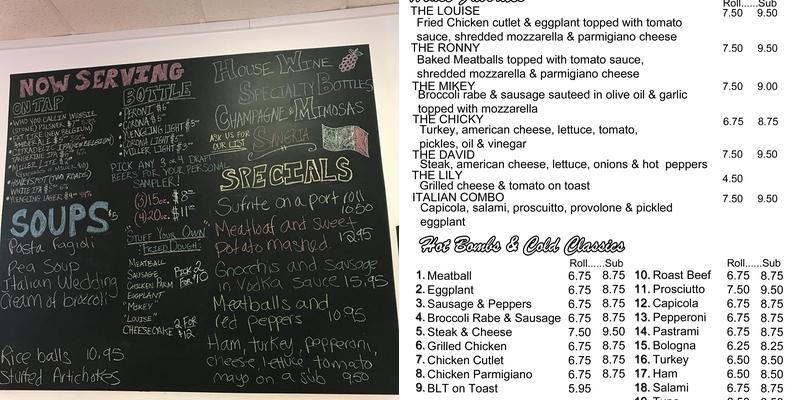 NOW SERVING
ON TAP
• WHO YOU CALLIN WUSSIE
(STONE) PILSNER
FAT TIRE (NEW BELGIUM)
AMBER ALE
CITRADELIC (NEW BELGIUM)
TANGERINE IPA
MILLER LITE
HONEYSPOT (TWO ROADS)
WHITE IPA
YENGLING LAGER
SOUPS
Pasta fagioli
Pea Soup
Italian Wedding
Cream of broccoli
Rice balls 10.95
Stuffed Artichokes
BOTTLE
• PERONI
• CORONA
• YENGLING LIGHT
• CORONA LIGHT
• MILLER LIGHT
PICK ANY 3 or 4 DRAFT
BEERS FOR YOUR PERSONAL
SAMPLER!
(3) 15oz. $8
(4) 20oz. $11
"STUFF YOUR OWN"
FRIED DOUGH:
MEATBALL
SAUSAGE
CHICKEN PARM
EGGPLANT
"MIKEY"
"LOUISE"
CHEESECAKE
PICK 2
FOR
$10
2 FOR
$12
HOUSE WINE
SPECIALTY BOTTLES
CHAMPAGNE & MIMOSAS
ASK US FOR
OUR LIST
SANGRIA
SPECIALS
on a port roll
10.50
Meatloaf and sweet
Potato mashed 12.95
Gnocchis and Sausage
in Vodka Sauce 15.95
Meatballs and
red peppers 10.95
Ham, turkey, pepperoni,
cheese, lettuce tomato
mayo on a sub 9.50
Roll......Sub
THE LOUISE 7.50 9.50
Fried Chicken cutlet & eggplant topped with tomato
sauce, shredded mozzarella & parmigiano cheese
THE RONNY 7.50 9.50
Baked Meatballs topped with tomato sauce,
shredded mozzarella & parmigiano cheese
THE MIKEY 7.50 9.00
Broccoli rabe & sausage sauteed in olive oil & garlic
topped with mozzarella
THE CHICKY 6.75 8.75
Turkey, american cheese, lettuce, tomato,
pickles, oil & vinegar
THE DAVID 7.50 9.50
Steak, american cheese, lettuce, onions & hot peppers
THE LILY 4.50
Grilled cheese & tomato on toast
ITALIAN COMBO 7.50 9.50
Capicola, salami, proscuitto, provolone & pickled
eggplant
Hot Bombs & Cold Classics
Roll......Sub
1. Meatball 6.75 8.75
2. Eggplant 6.75 8.75
3. Sausage & Peppers 6.75 8.75
4. Broccoli Rabe & Sausage 6.75 8.75
5. Steak & Cheese 7.50 9.50
6. Grilled Chicken 6.75 8.75
7. Chicken Cutlet 6.75 8.75
8. Chicken Parmigiano 6.75 8.75
9. BLT on Toast 5.95
Roll......Sub
10. Roast Beef 6.75 8.75
11. Prosciutto 7.50 9.50
12. Capicola 6.75 8.75
13. Pepperoni 6.75 8.75
14. Pastrami 6.75 8.75
15. Bologna 6.25 8.25
16. Turkey 6.50 8.50
17. Ham 6.50 8.50
18. Salami 6.75 8.75